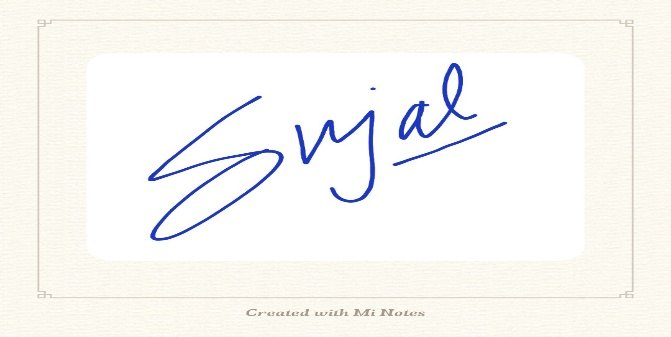 Sujal
Created with Mi Notes